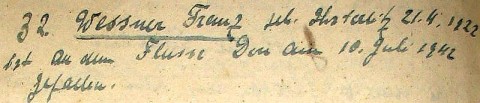 32 Wessner Franz geb. 21.4.1922
ist an dem Flusse Don am 10. Juli 1942
gefallen.